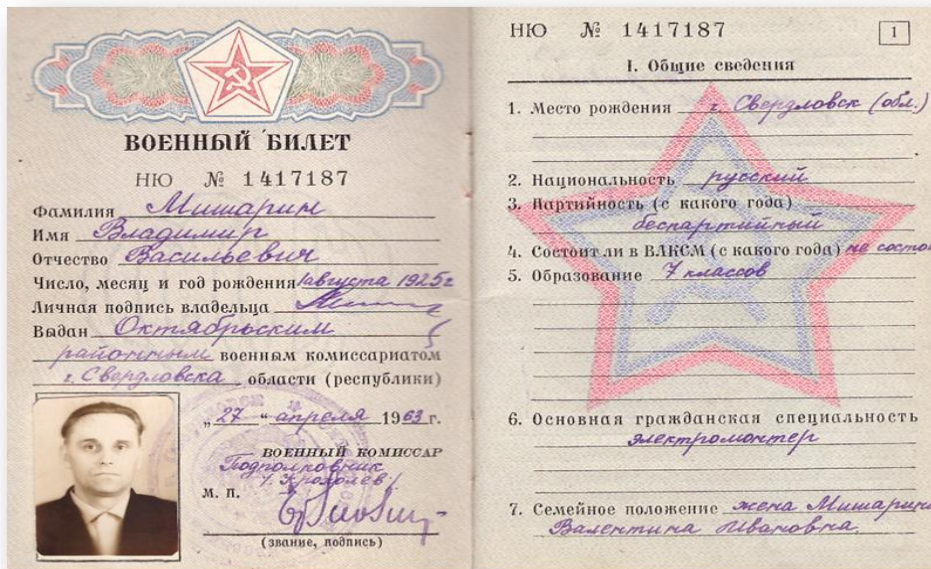 ВОЕННЫЙ БИЛЕТ
НЮ № 1417187
Фамилия Мишарин
Имя Владимир
Отчество Васильевич
Число, месяц и год рождения 1 августа 1925 г
Личная подпись владельца
Выдан Октябрьским
районным военным комиссариатом
г. Свердловска области (республики)
„27“ апреля 1963 г.
ВОЕННЫЙ КОМИССАР
Подполковник
М. П.
(звание, подпись)
НЮ № 1417187
1
I. Общие сведения
1. Место рождения г. Свердловск (обл.)
2. Национальность русский
3. Партийность (с какого года)
беспартийный
4. Состоит ли в ВЛКСМ (с какого года) не состо
5. Образование 7 классов
6. Основная гражданская специальность
электромонтер
7. Семейное положение жена Мишарина
Валентина Ивановна